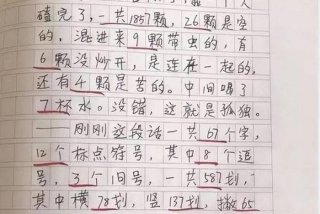 磕完了，一共1857颗，26颗是空
的，混进来9颗带虫的，有
6颗没炒开，是连在一起的，
还有4颗是苦的。中间喝了
7杯水。没错，这就是孤独。
——刚刚这段话一共67个字，
12个标点符号，其中8个逗
号，3个句号，一共587划，
其中横78划，竖137划，撇65